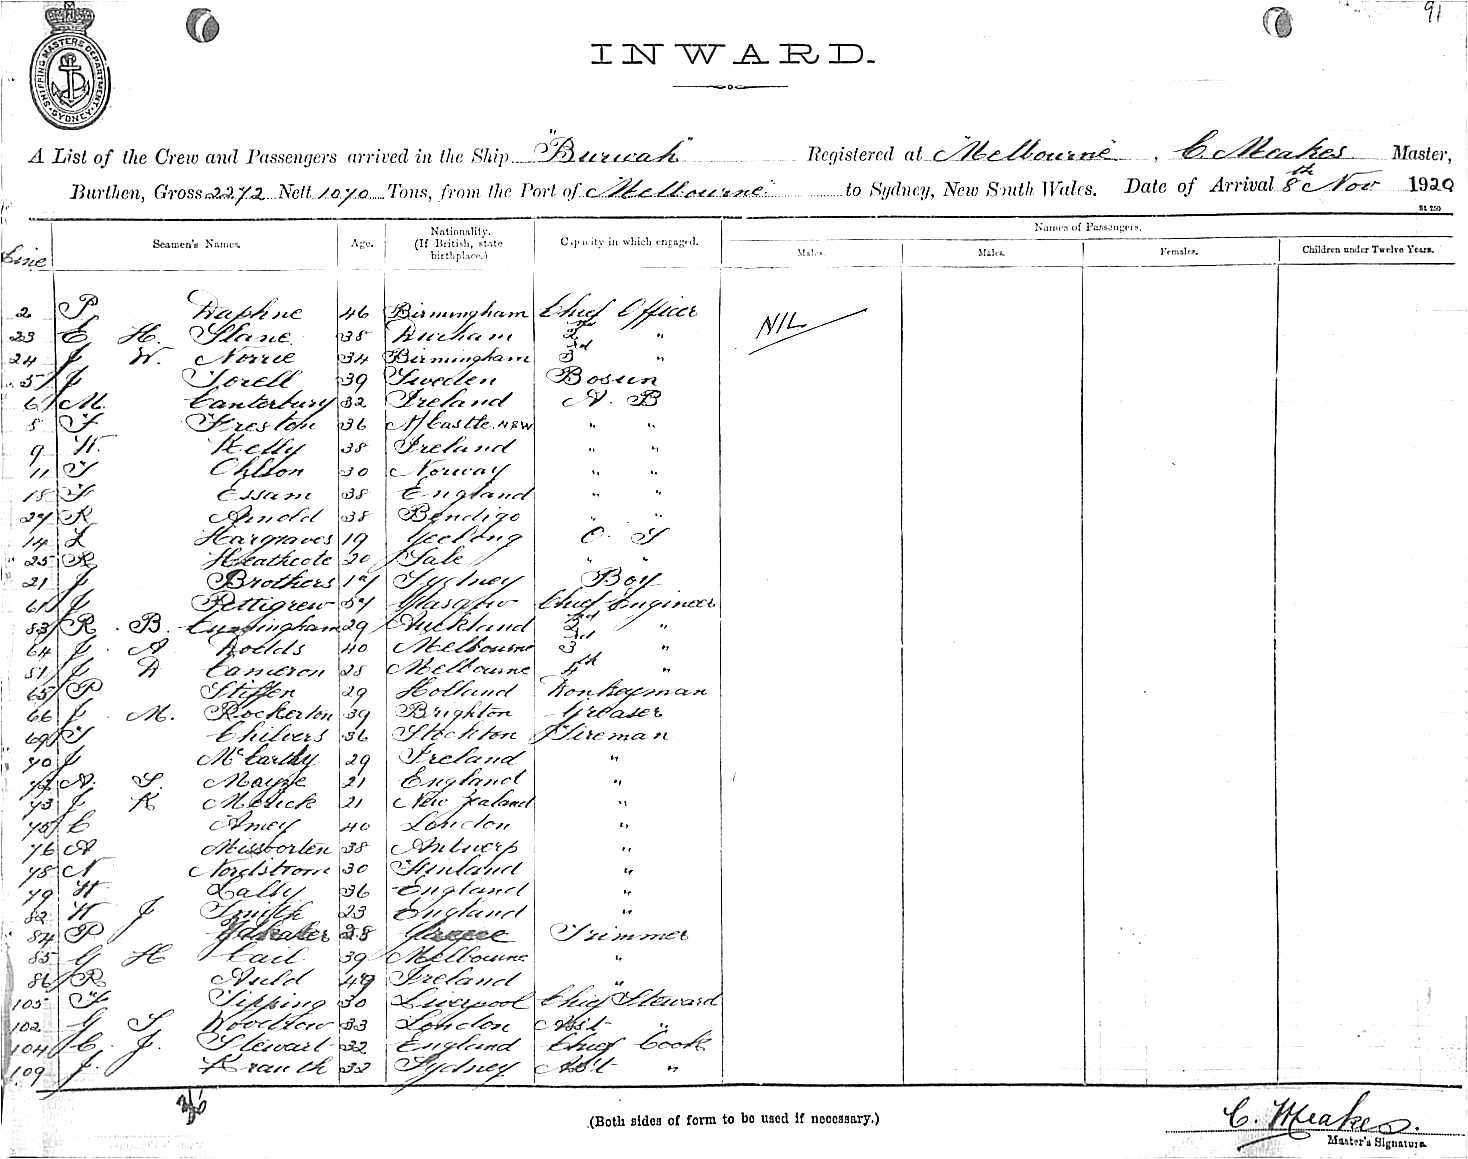 91
SHIPPING MASTERS DEPARTMENT SYDNEY
INWARD.
A List of the Crew and Passengers arrived in the Ship "Burwah" Registered at Melbourne, C. Meakes Master,
Burthen, Gross 2272 Nett 1070 Tons, from the Port of Melbourne to Sydney, New South Wales. Date of Arrival 8th Nov 1920
Line Seamen's Names. Age. Nationality. (If British, state birthplace.) Capacity in which engaged. Names of Passengers.
Males. Males. Females. Children under Twelve Years.
2 P Daphne 46 Birmingham Chief Officer NIL
23 E H. Slane 38 Durham 2nd "
24 J W. Norrie 34 Birmingham 3rd "
5 J Torell 39 Sweden Bosun
6 M. Canterbury 32 Ireland A. B
8 F Freston 36 N/Castle NSW " "
9 W. Kelly 38 Ireland " "
11 T Ohlson 30 Norway " "
18 T Essam 38 England " "
27 R Arnold 38 Bendigo " "
14 L Hargraves 19 Geelong O. S
25 R Heathcote 20 Sale " "
21 J Brothers 17 Sydney Boy
61 J Pettigrew 57 Glasgow Chief Engineer
83 R. B. Cunningham 29 Auckland 2nd "
64 J. A Dodds 40 Melbourne 3rd "
81 J D Cameron 28 Melbourne 4th "
65 P Steffen 29 Holland Donkeyman
66 J. M. Rockerton 39 Brighton Greaser
69 T Chilvers 36 Stockton Fireman
70 J McCarthy 29 Ireland "
72 A. S. Mayze 21 England "
73 J K Melick 21 New Zealand "
75 C Amey 40 London "
76 A Missorten 38 Antwerp "
78 N Nordstrom 30 Finland "
79 W Lally 36 England "
82 W J Smith 23 England "
84 P 28 Greece Trimmer
85 G H Cail 39 Melbourne "
86 R Auld 49 Ireland "
105 F Tipping 30 Liverpool Chief Steward
102 G S Woodlow 33 London Asst "
104 C. J. Stewart 32 England Chief Cook
109 J. Kranth 32 Sydney Asst "
36
(Both sides of form to be used if necessary.)
C. Meakes.
Master's Signature.